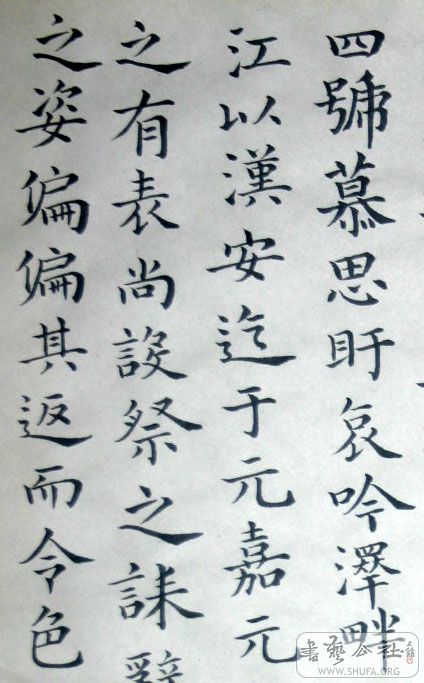 四號慕思盱哀吟澤畔
江以漢安迄于元嘉元
之有表尚設祭之誄辭
之姿偏偏其返而令色
書藝公社
WWW.SHUFA.ORG